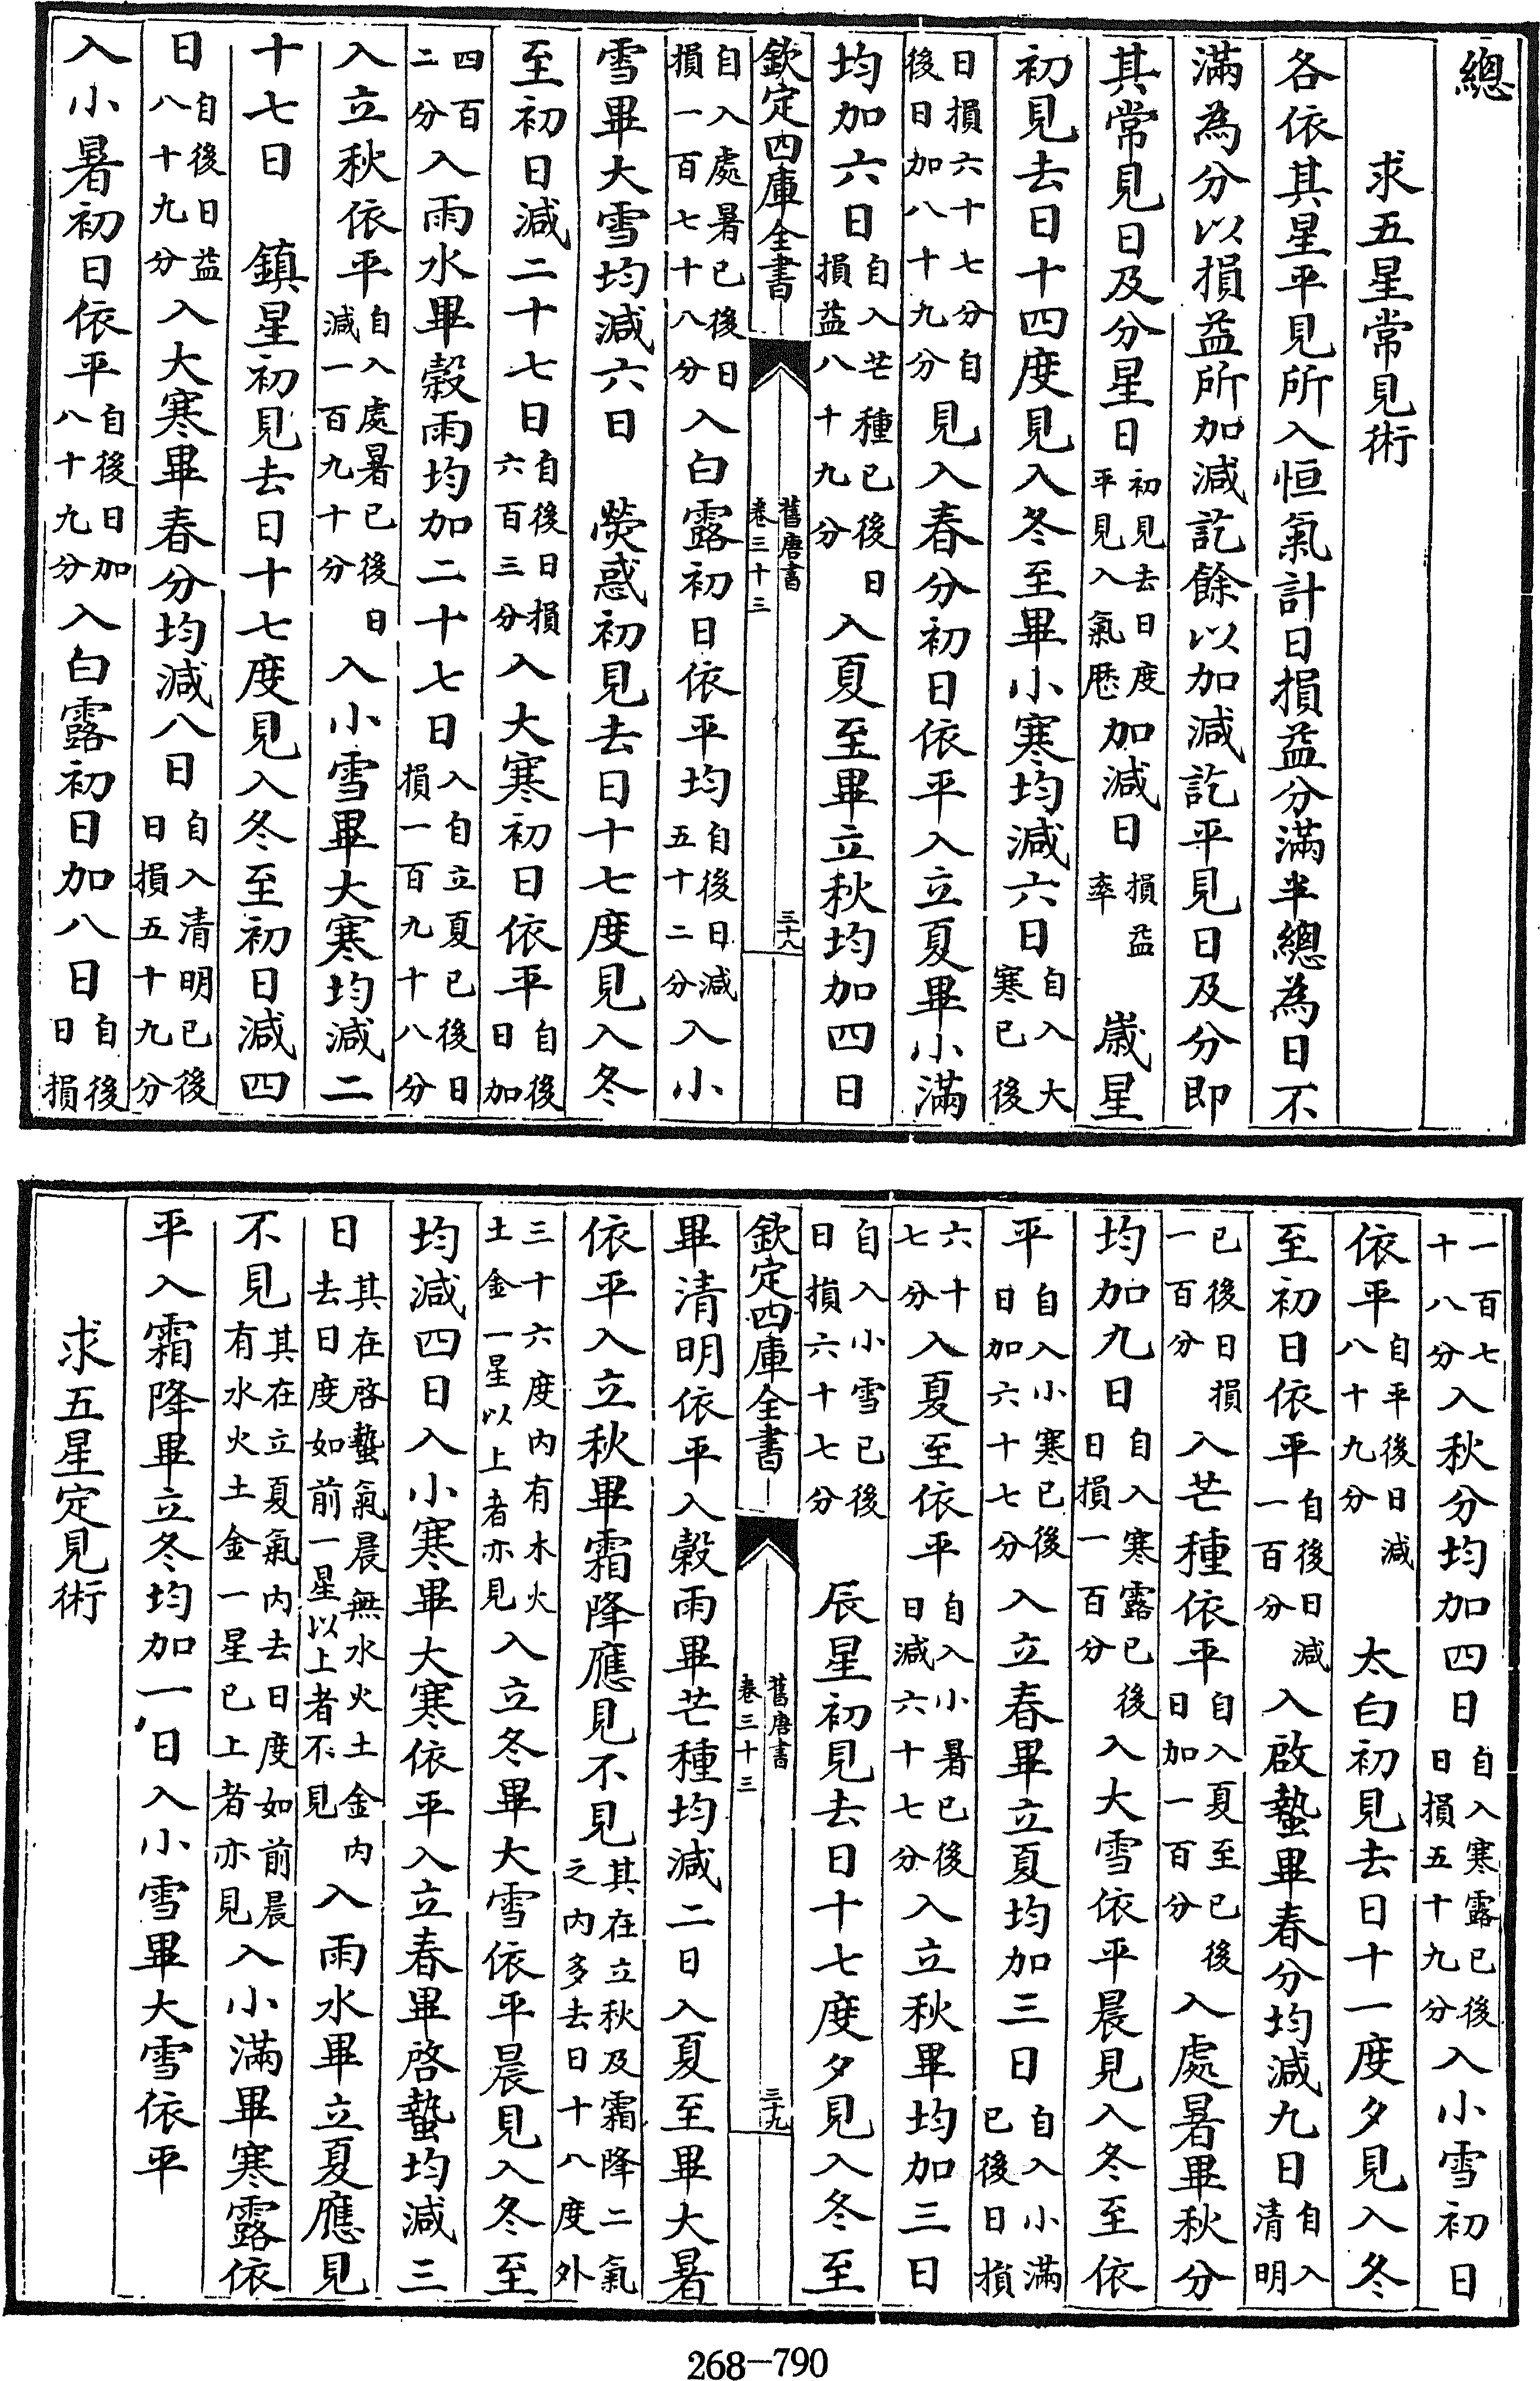 總
求五星常見術
各依其星平見所入恒氣計日損益分滿半總為日不
滿為分以損益所加減訖餘以加減訖平見日及分即
其常見日及分星日初見去日度平見入氣厯加減日損益率　歲星
初見去日十四度見入冬至畢小寒均減六日自入大寒已後
日損六十七分自後日加八十九分見入春分初日依平入立夏畢小滿
均加六日自入芒種已後日損益八十九分入夏至畢立秋均加四日
欽定四庫全書
舊唐書
卷三十三
三十八
自入處暑已後日損一百七十八分入白露初日依平均自後日減五十二分入小
雪畢大雪均減六日　熒惑初見去日十七度見入冬
至初日減二十七日自後日損六百三分入大寒初日依平自後日加
四百二分入雨水畢穀雨均加二十七日入自立夏已後日損一百九十八分
入立秋依平自入處暑已後日減一百九十分入小雪畢大寒均減二
十七日　鎮星初見去日十七度見入冬至初日減四
日自後日益八十九分入大寒畢春分均減八日自入清明已後日損五十九分
入小暑初日依平自後日加八十九分入白露初日加八日自後日損
一百七十八分入秋分均加四日自入寒露已後日損五十九分入小雪初日
依平自平後日減八十九分　太白初見去日十一度夕見入冬
至初日依平自後日減一百分入啟蟄畢春分均減九日自入清明
已後日損一百分入芒種依平自入夏至已後日加一百分入處暑畢秋分
均加九日自入寒露已後日損一百分入大雪依平晨見入冬至依
平自入小寒已後日加六十七分入立春畢立夏均加三日自入小滿已後日損
六十七分入夏至依平自入小暑已後日減六十七分入立秋畢均加三日
自入小雪已後日損六十七分　辰星初見去日十七度夕見入冬至
欽定四庫全書
舊唐書
卷三十三
三十九
畢清明依平入穀雨畢芒種均減二日入夏至畢大暑
依平入立秋畢霜降應見不見其在立秋及霜降二氣之內多去日十八度外
三十六度內有木火土金一星以上者亦見入立冬畢大雪依平晨見入冬至
均減四日入小寒畢大寒依平入立春畢啓蟄均減三
日其在啓蟄氣晨無水火土金內去日度如前一星以上者不見入雨水畢立夏應見
不見其在立夏氣內去日度如前晨有水火土金一星已上者亦見入小滿畢寒露依
平入霜降畢立冬均加一日入小雪畢大雪依平
求五星定見術
268-790